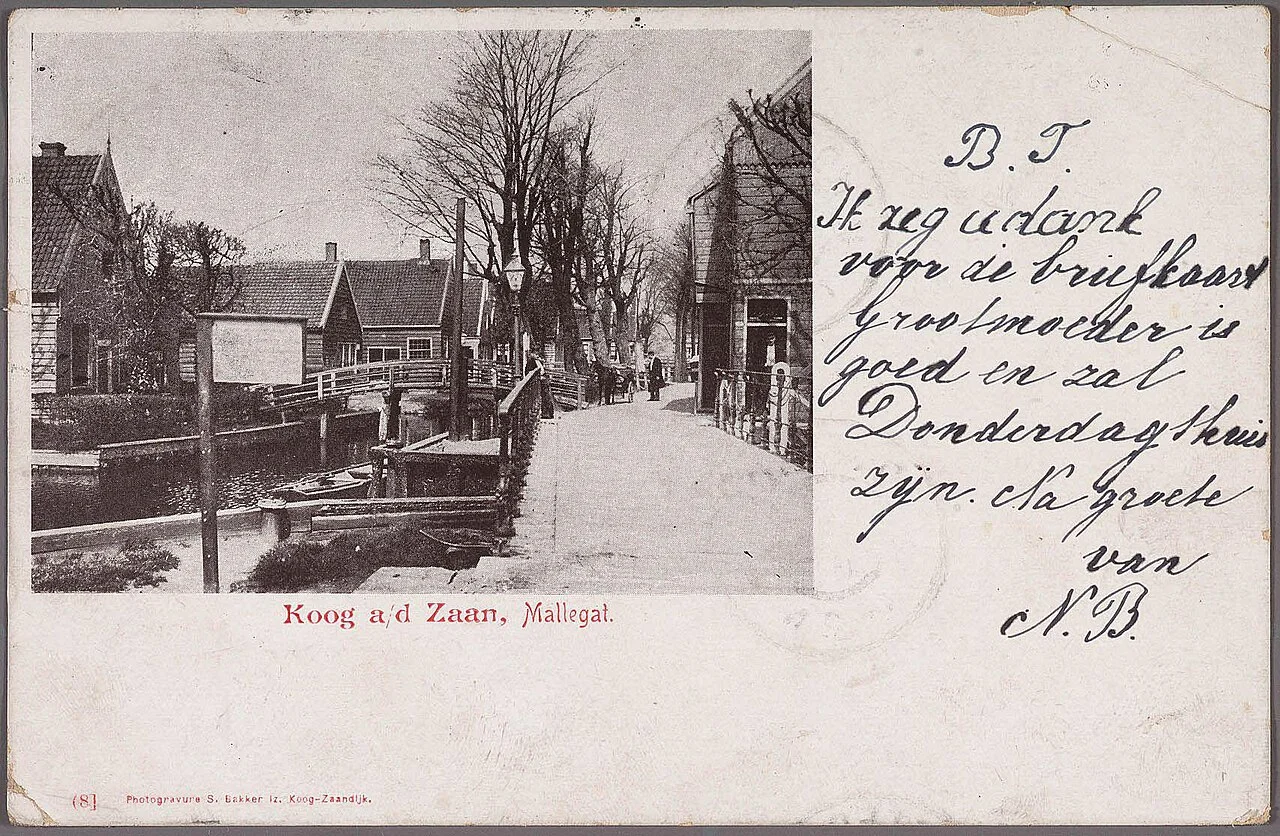 B. T.
Ik zeg u dank
voor de briefkaart
Grootmoeder is
goed en zal
Donderdag thuis
zijn. Na groete
van
N. B.
Koog a/d Zaan, Mallegat.
(8] Photogravure S. Bakker Iz. Koog-Zaandijk.